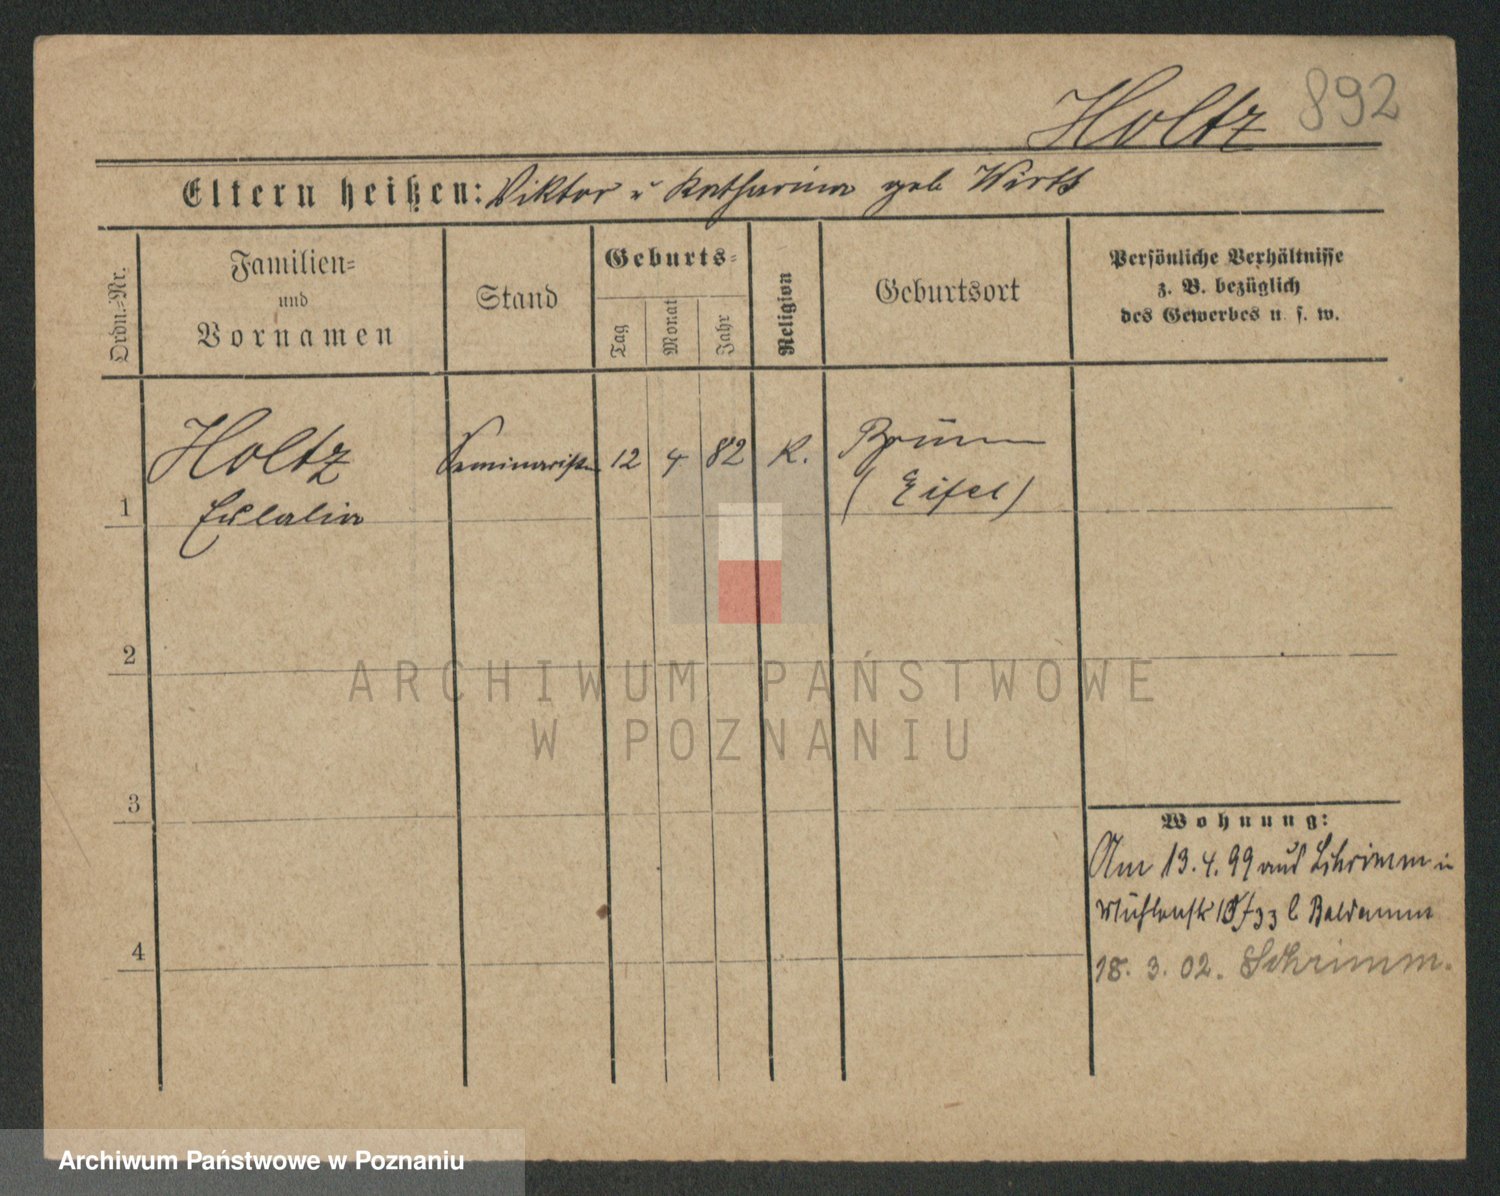 Holtz 892
Eltern heißen: Viktor u Katharina geb Wirtz
Ordn.-Nr.
Familien-
und
Vornamen
Stand
Geburts-
Tag
Monat
Jahr
Religion
Geburtsort
Persönliche Verhältnisse
z. B. bezüglich
des Gewerbes u. s. w.
1
Holtz
Eulalia
Seminaristin
12
4
82
K.
(Eifel)
2
3
4
Wohnung:
Am 13.4.99 aus Schrimm in
Mühlenstr b Baldamus
18. 3. 02. Schrimm.
ARCHIWUM PAŃSTWOWE
W POZNANIU
Archiwum Państwowe w Poznaniu